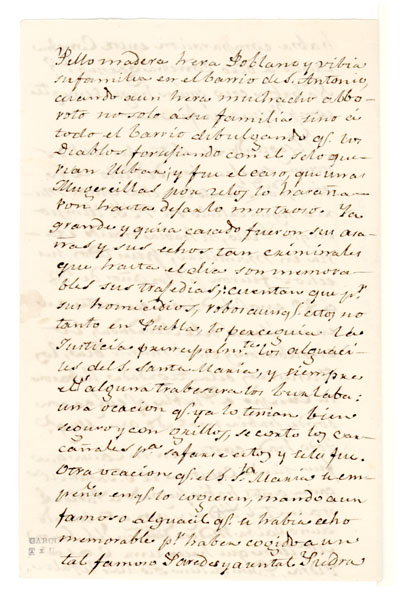 Pillo madera hera Poblano y vibia
su familia en el barrio de S. Antonio,
cuando aun hera muchacho albo
roto no solo a su familia sino a
todo el barrio dibulgando qe. los
Diablos forsejando con el se lo que
rian llebar; y fue el caso, que unas
Mugercillas por zelos lo haraña
ron hasta dejarlo mostroso. Ya
grande y quisa casado fueron sus asa
ñas y sus echos tan criminales
que hasta el dia son memora
bles sus trajedias; cuentan que pr.
sus homicidios, robos aunqe. esto no
tanto en Puebla, lo perceguia la
Justicia principalmte. los alguaci
les del S. Santa María, y siempre
pr. alguna trabesura los burlaba:
una ocacion qe. ya lo tenian bien
seguro y con grillos, se corto los car
cañales pa. safarse estos y se les fue.
Otra ocacion qe. el S. Sta. María se em
peño en qe. lo cogieran, mando a un
famoso alguacil qe. se habia echo
memorable pr. haber cogido a un
tal famoso Paredes y a un tal Piedra
GARCI